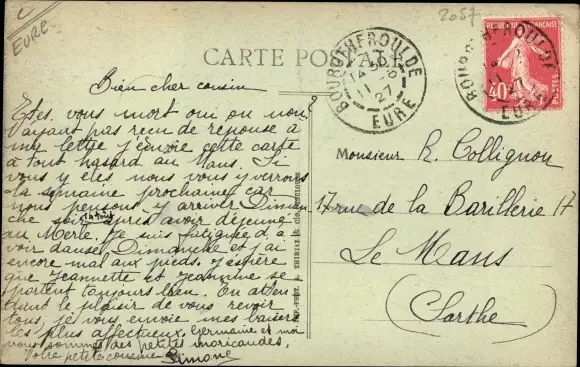 EURE
2057
CARTE POSTALE
BOURGTHEROULDE
14
11
27
EURE
BOURGTHEROULDE
EURE
REPUBLIQUE FRANÇAISE
40
POSTES
Bien cher cousin
Etes, vous mort oui ou non?
N'ayant pas reçu de reponse à
ma lettre j'envoie cette carte
à tout hasard au Mans. Si
vous y etes nous vous y verrons
la semaine prochaine car
nous pensons y arriver Diman
che soir après avoir déjeuné
au Merle. Je suis fatiguée d'a
voir danser Dimanche et j'ai
encore mal aux pieds. J'espère
que Jeannette et Jeannine se
portent toujours bien. En atten
dant le plaisir de vous revoir
tous, je vous envoie mes baisers
les plus affectueux. Germaine et moi
nous sommes des petites moricaudes,
Votre petite cousine
Simone
Monsieur R. Collignon
17 rue de la Barillerie 17
Le Mans
(Sarthe)